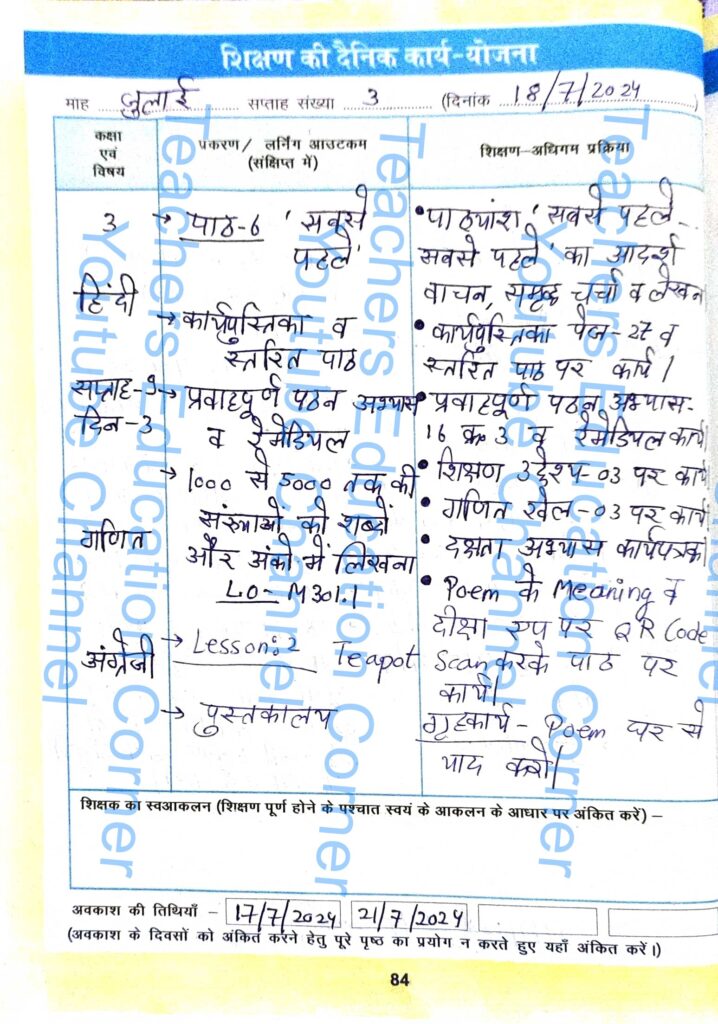 शिक्षण की दैनिक कार्य-योजना
माह जुलाई सप्ताह संख्या 3 (दिनांक 18/7/2024)
कक्षा
एवं
विषय
प्रकरण/ लर्निंग आउटकम
(संक्षिप्त में)
शिक्षण-अधिगम प्रक्रिया
3
हिंदी
सप्ताह-3
दिन-3
गणित
अंग्रेजी
→ पाठ-6 'सबसे
पहले'
→ कार्यपुस्तिका व
स्तरित पाठ
→ प्रवाहपूर्ण पठन अभ्यास
व रेमेडियल
→ 1000 से 5000 तक की
संख्याओं को शब्दों
और अंको में लिखना
LO- M301.1
→ Lesson:2 Teapot
→ पुस्तकालय
• पाठ्यांश 'सबसे पहले-
सबसे पहले' का आदर्श
वाचन, समृद्ध चर्चा व लेखन
• कार्यपुस्तिका पेज-27 व
स्तरित पाठ पर कार्य।
• प्रवाहपूर्ण पठन अभ्यास-
16 क्र 3 व रेमेडियल कार्य
• शिक्षण उद्देश्य-03 पर कार्य
• गणित खेल-03 पर कार्य
• दक्षता अभ्यास कार्यपत्रक
• Poem के Meaning व
दीक्षा एप पर QR Code
Scan करके पाठ पर
कार्य।
गृहकार्य- Poem घर से
याद करो।
शिक्षक का स्वआकलन (शिक्षण पूर्ण होने के पश्चात स्वयं के आकलन के आधार पर अंकित करें) –
अवकाश की तिथियाँ – 17/7/2024 21/7/2024
(अवकाश के दिवसों को अंकित करेने हेतु पूरे पृष्ठ का प्रयोग न करते हुए यहाँ अंकित करें।)
84
Teachers Education Corner
Youtube Channel
Teachers Education Corner
Youtube Channel
Teachers Education Corner
Youtube Channel